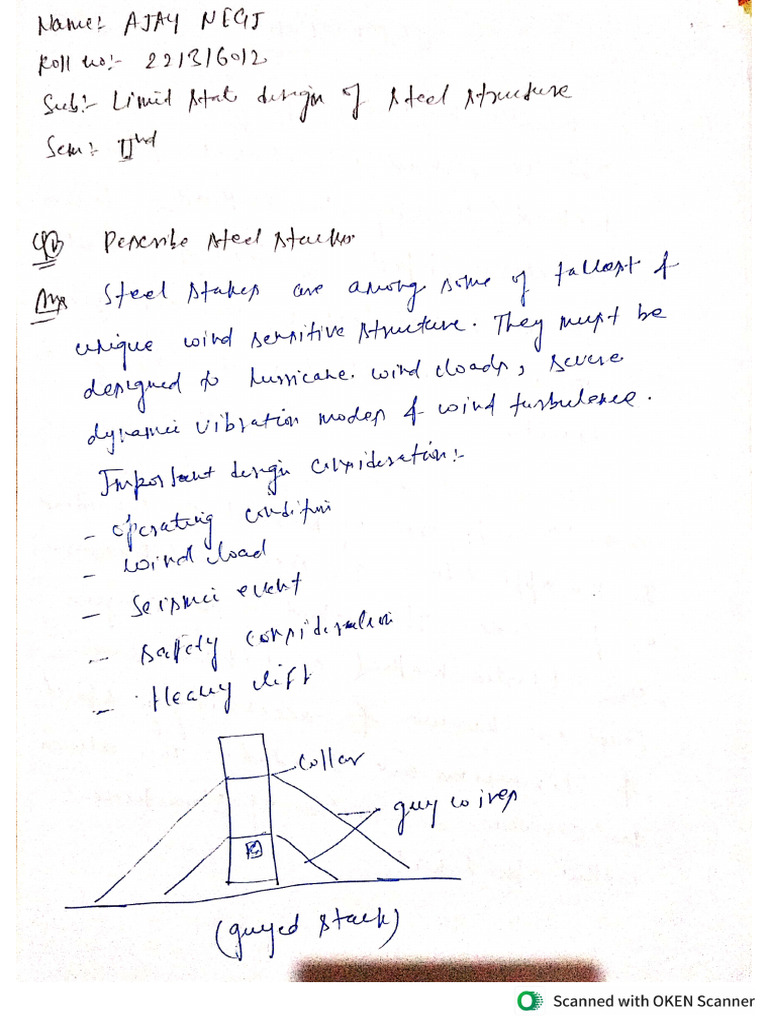 Name:- AJAY NEGI
Roll no:- 221316012
Sub:- Limit stat design of steel structure
Sem:- IInd
Describe steel stacks
Ans Steel stakes are among some of tallest &
unique wind sensitive structure. They must be
designed to hurricane. wind loads, severe
dynamic vibration modes & wind turbulence.
Important design consideration:-
- operating condition
- wind load
- Seismic event
- safety consideration
- Heavy lift
collar
guy wires
(guyed stack)
Scanned with OKEN Scanner